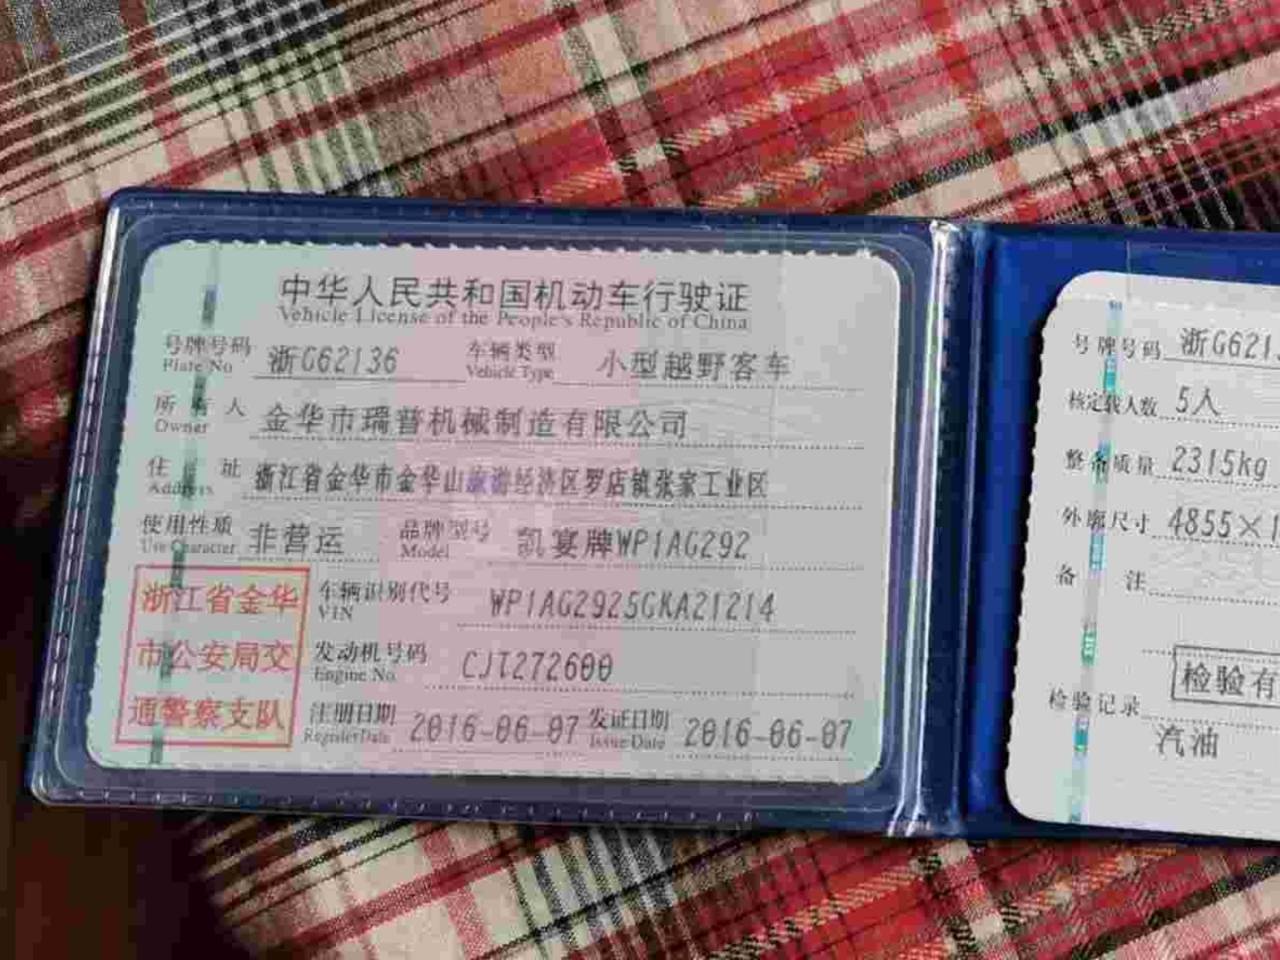 中华人民共和国机动车行驶证
Vehicle License of the People's Republic of China
号牌号码 浙G62136 车辆类型 小型越野客车
Plate No Vehicle Type
所有人 金华市瑞普机械制造有限公司
Owner
住址 浙江省金华市金华山旅游经济区罗店镇张家工业区
Address
使用性质 非营运 品牌型号 凯宴牌WP1AG292
Use Character Model
浙江省金华
市公安局交
通警察支队
车辆识别代号 WP1AG2925GKA21214
VIN
发动机号码 CJT272600
Engine No.
注册日期 2016-06-07 发证日期 2016-06-07
Register Date Issue Date
号牌号码 浙G621
核定载人数 5人
整备质量 2315kg
外廓尺寸 4855×1
备注
检验有
检验记录
汽油